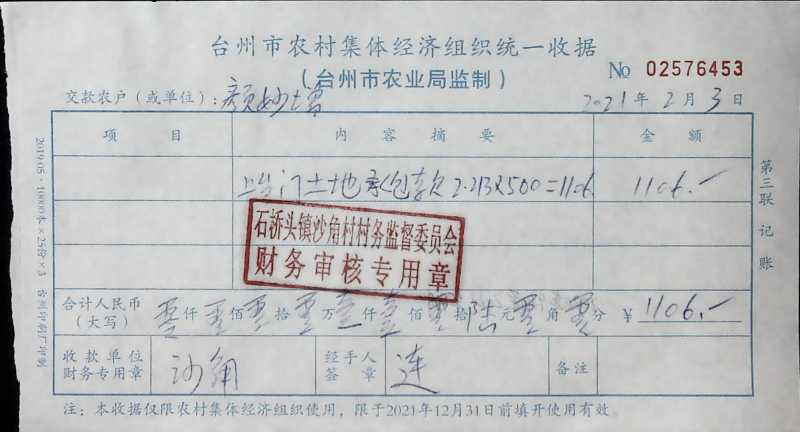 台州市农村集体经济组织统一收据
(台州市农业局监制)
No 02576453
交款农户(或单位):颜妙增
2021年2月3日
项目 内容摘要 金额
门土地承包款2.213×500=1106 1106.-
石桥头镇沙角村村务监督委员会
财务审核专用章
合计人民币
(大写) 零仟零佰零拾零万壹仟壹佰零拾陆元零角零分 ¥1106.-
收款单位
财务专用章 沙角
经手人
签章 连
备注
注:本收据仅限农村集体经济组织使用,限于2021年12月31日前填开使用有效。
第三联 记账
2019.05·10000本×25份×3 台州印刷厂印制